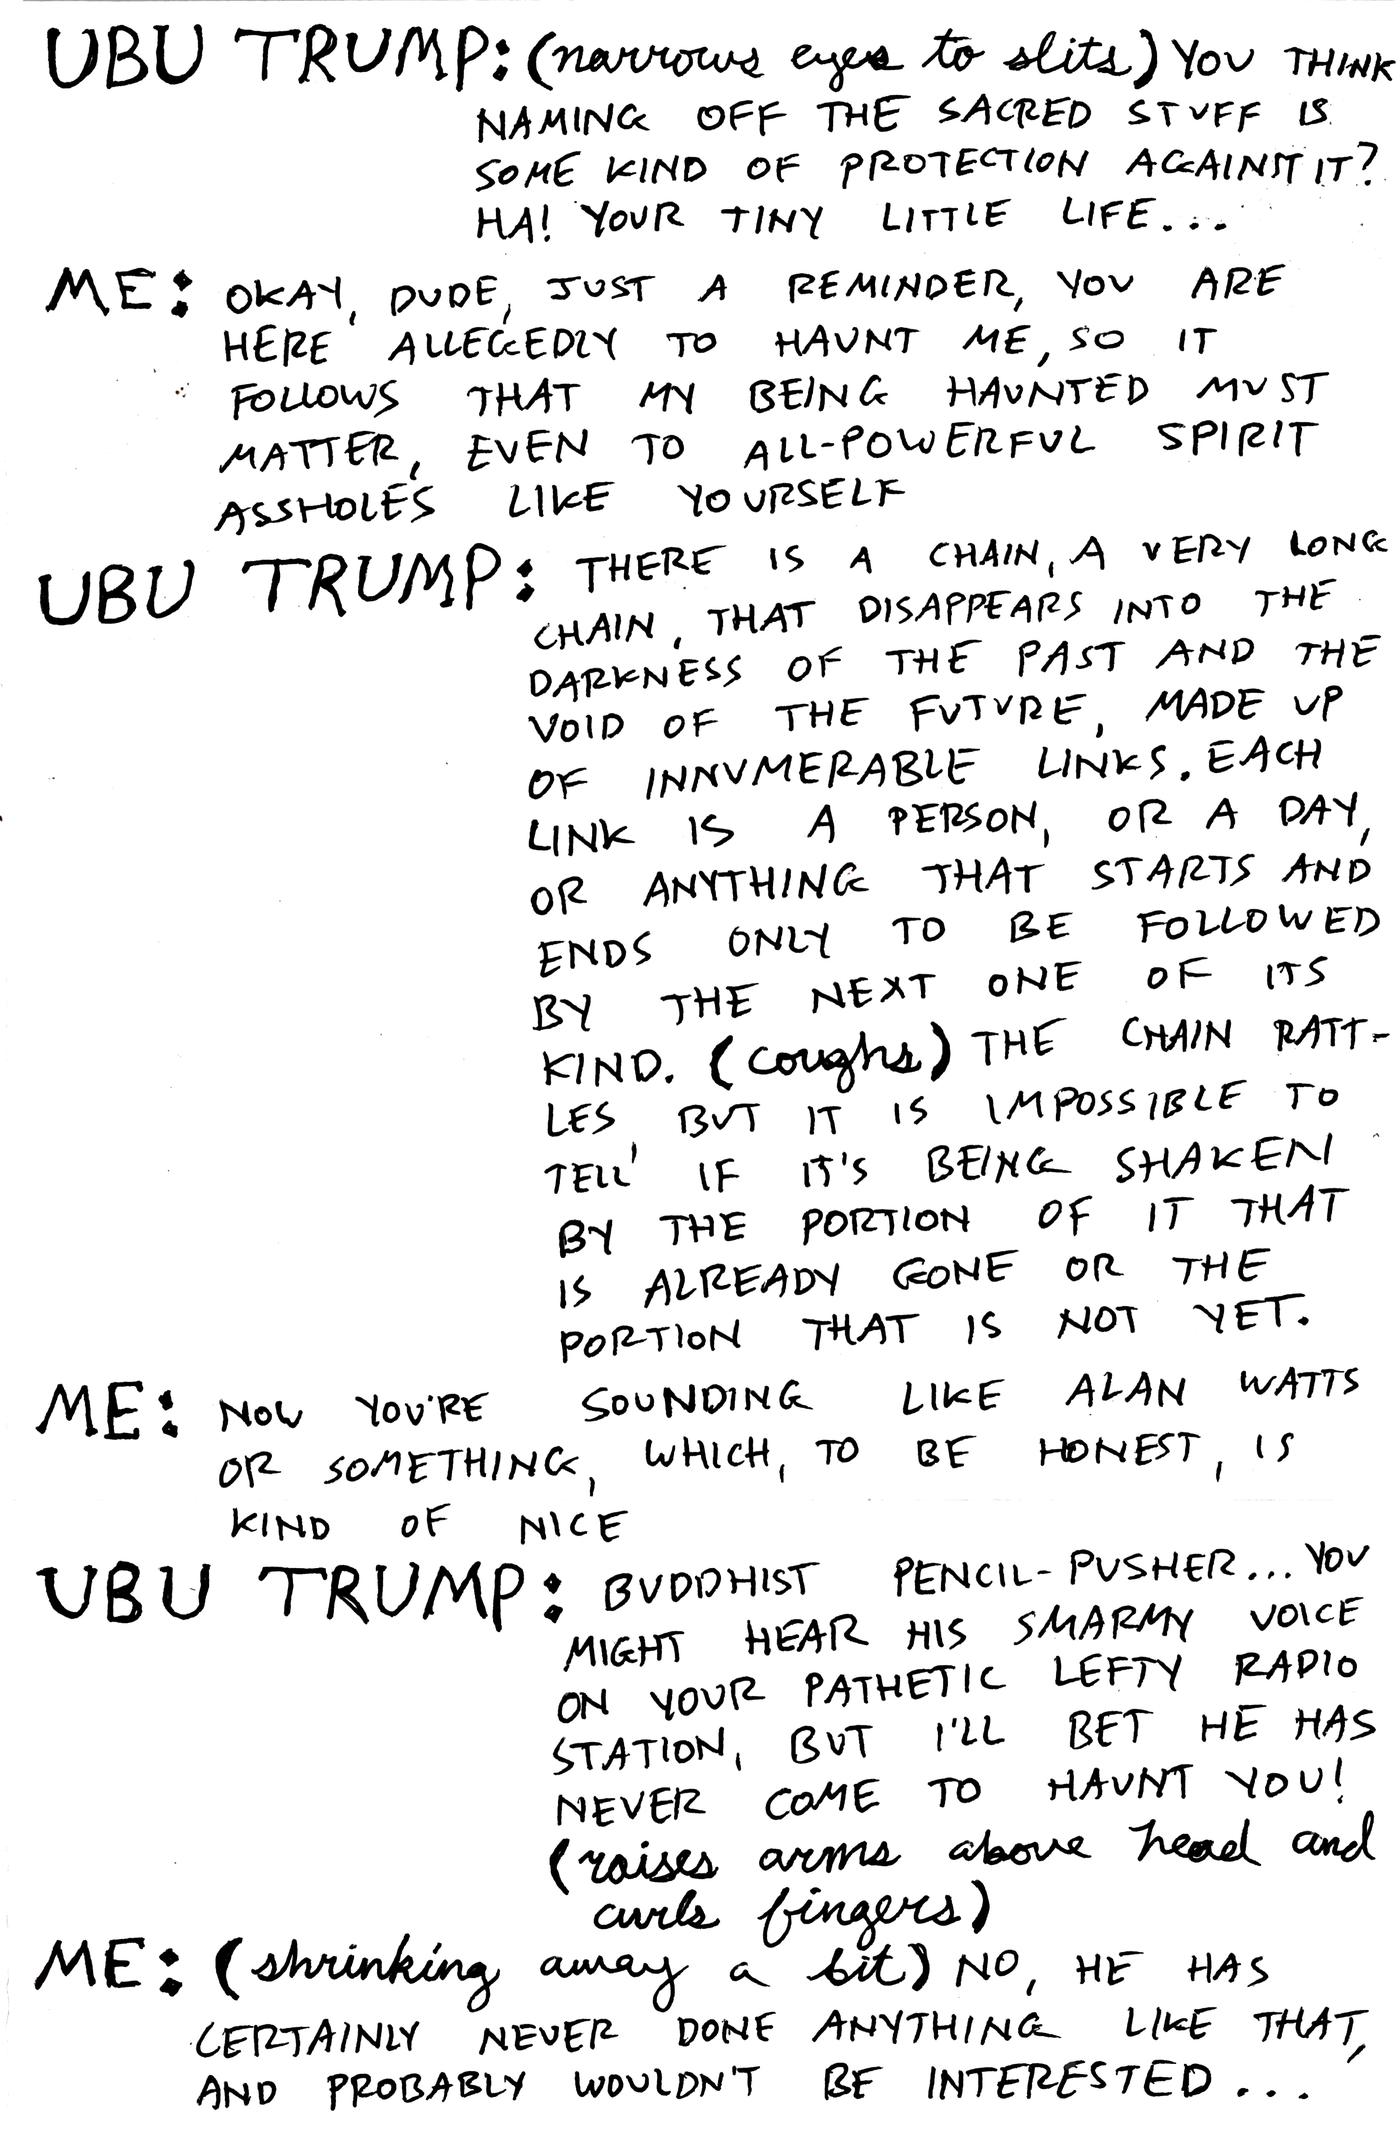 UBU TRUMP: (narrows eyes to slits) YOU THINK
NAMING OFF THE SACRED STUFF IS
SOME KIND OF PROTECTION AGAINST IT?
HA! YOUR TINY LITTLE LIFE...
ME: OKAY, DUDE, JUST A REMINDER, YOU ARE
HERE ALLEGEDLY TO HAUNT ME, SO IT
FOLLOWS THAT MY BEING HAUNTED MUST
MATTER, EVEN TO ALL-POWERFUL SPIRIT
ASSHOLES LIKE YOURSELF
UBU TRUMP: THERE IS A CHAIN, A VERY LONG
CHAIN, THAT DISAPPEARS INTO THE
DARKNESS OF THE PAST AND THE
VOID OF THE FUTURE, MADE UP
OF INNUMERABLE LINKS. EACH
LINK IS A PERSON, OR A DAY,
OR ANYTHING THAT STARTS AND
ENDS ONLY TO BE FOLLOWED
BY THE NEXT ONE OF ITS
KIND. (coughs) THE CHAIN RATT-
LES, BUT IT IS IMPOSSIBLE TO
TELL IF IT'S BEING SHAKEN
BY THE PORTION OF IT THAT
IS ALREADY GONE OR THE
PORTION THAT IS NOT YET.
ME: NOW YOU'RE SOUNDING LIKE ALAN WATTS
OR SOMETHING, WHICH, TO BE HONEST, IS
KIND OF NICE
UBU TRUMP: BUDDHIST PENCIL-PUSHER... YOU
MIGHT HEAR HIS SMARMY VOICE
ON YOUR PATHETIC LEFTY RADIO
STATION, BUT I'LL BET HE HAS
NEVER COME TO HAUNT YOU!
(raises arms above head and
curls fingers)
ME: (shrinking away a bit) NO, HE HAS
CERTAINLY NEVER DONE ANYTHING LIKE THAT,
AND PROBABLY WOULDN'T BE INTERESTED...